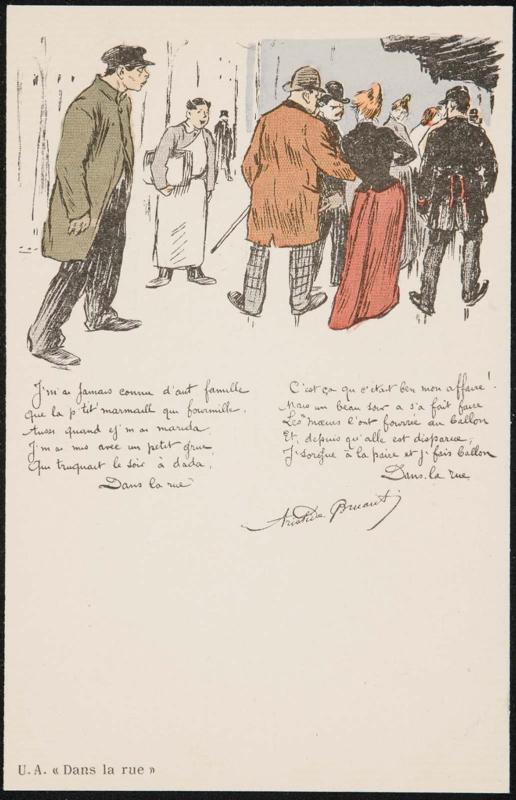 J'm'ai jamais connu d'aut' famille
Que la p'tit' marmaill' qui fourmille,
Aussi quand ej' m'ai marida
J'm'ai mis avec un' petit' grue
Qui truquait le soir à dada,
Dans la rue
C'est ça qu c'était ben mon affaire!
Mais un beau soir a s'a fait faire
Les Mœurs l'ont fourrée au ballon
Et, depuis qu'alle est disparue,
J'sorgue à la paire et j'fais ballon
Dans la rue
Aristide Bruant
U.A. « Dans la rue »